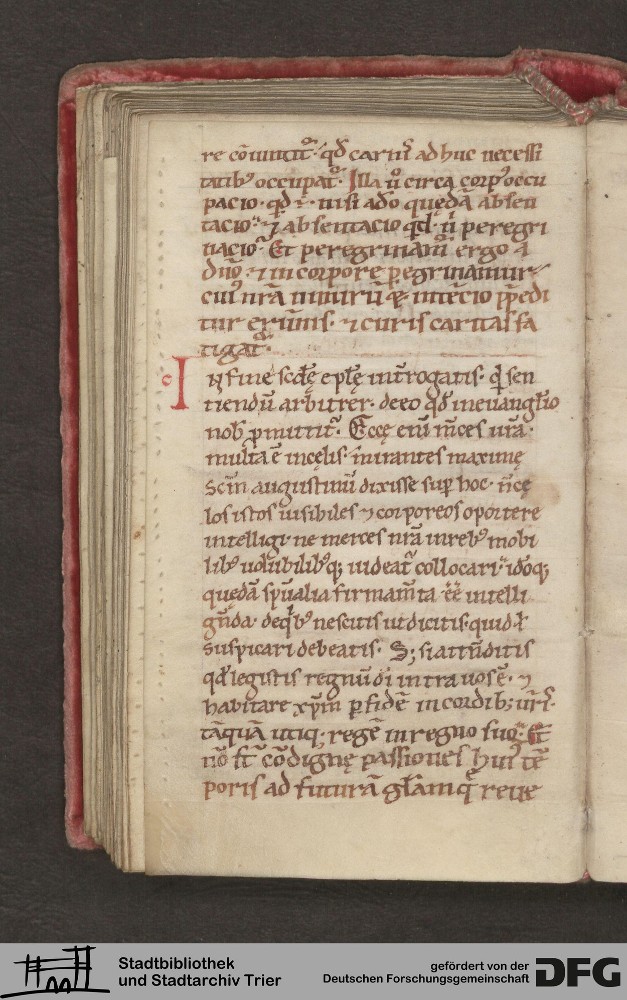 re cōvincit᷑. qđ carnis adhuc necessi
tatib⁹ occupat᷑. Illa ů circa corp⁹ occu
pacio. qđ ÷ nisi a dō quędā absen
tacio. ⁊ absentacio qđ nͥ peregri
nacio. Et peregrinam᷑ ergo a
dn̄o. ⁊ in corpore peregrinamur.
cui⁹ nr̄a intēcio p̄pedi
tur erūnis. ⁊ curis caritas fa
tigat᷑.
In fine scďę epl̄ę int̄rogatis. qđ sen
tiendū arbitrer. de eo qđ in evanglīo
nob̄ p̄mittit᷑. Eccę eni m̄ces vr̄a.
multa ē in cęlis. Mirantes maximę
Sc̄m augustinū dixisse sup hoc. n̄ cę
los istos visibiles ⁊ corporeos oportere
intelligi. ne merces nr̄a in reb⁹ mobi
lib⁹ volubilibꝰq; videat᷑ collocari. idōq;
quędā spūalia firmam̄ta ēē intelli
gn̄da. de qⁱb⁹ nescitis ut dicitis. quid ł
suspicari debeatis. S; si attn̄ditis
qđ legistis regnū dī intra vos ē. ⁊
habitare xp̄m p fidē in cordib; vr̄is.
tāquā utiq; regē in regno suo. Et
nō st̄ cōdignę passiones hui⁹ tē
poris ad futurā gl̄am q̄ reve
Stadtbibliothek
und Stadtarchiv Trier
gefördert von der
Deutschen Forschungsgemeinschaft
DFG